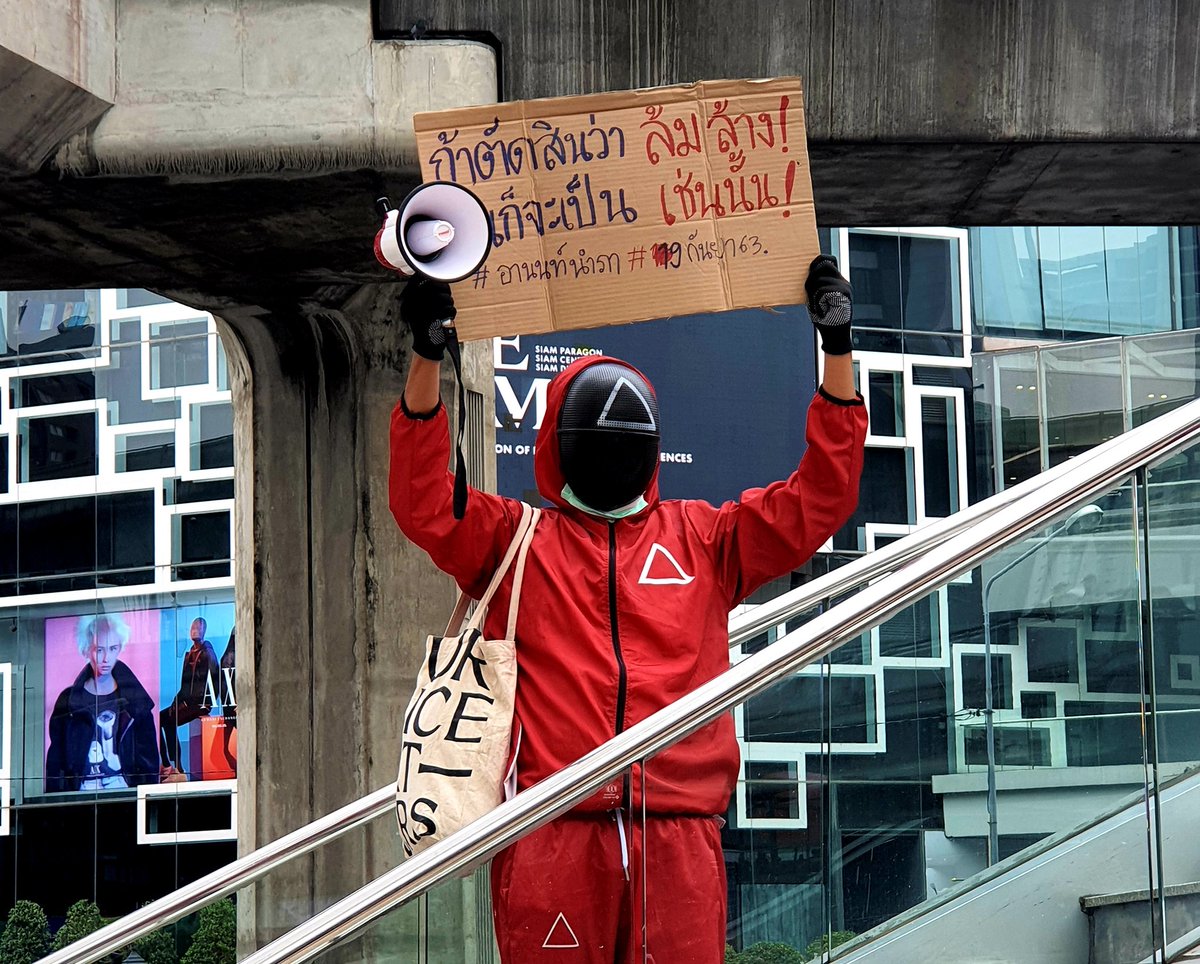 ถ้าตัดสินว่า ล้มล้าง!
ก็จะเป็น เช่นนั้น!
# อานนท์นำภา # 10 กันยา 63.
SIAM PARAGON
SIAM
SIAM
ENCES
UR
ICE
T–
RS
AX